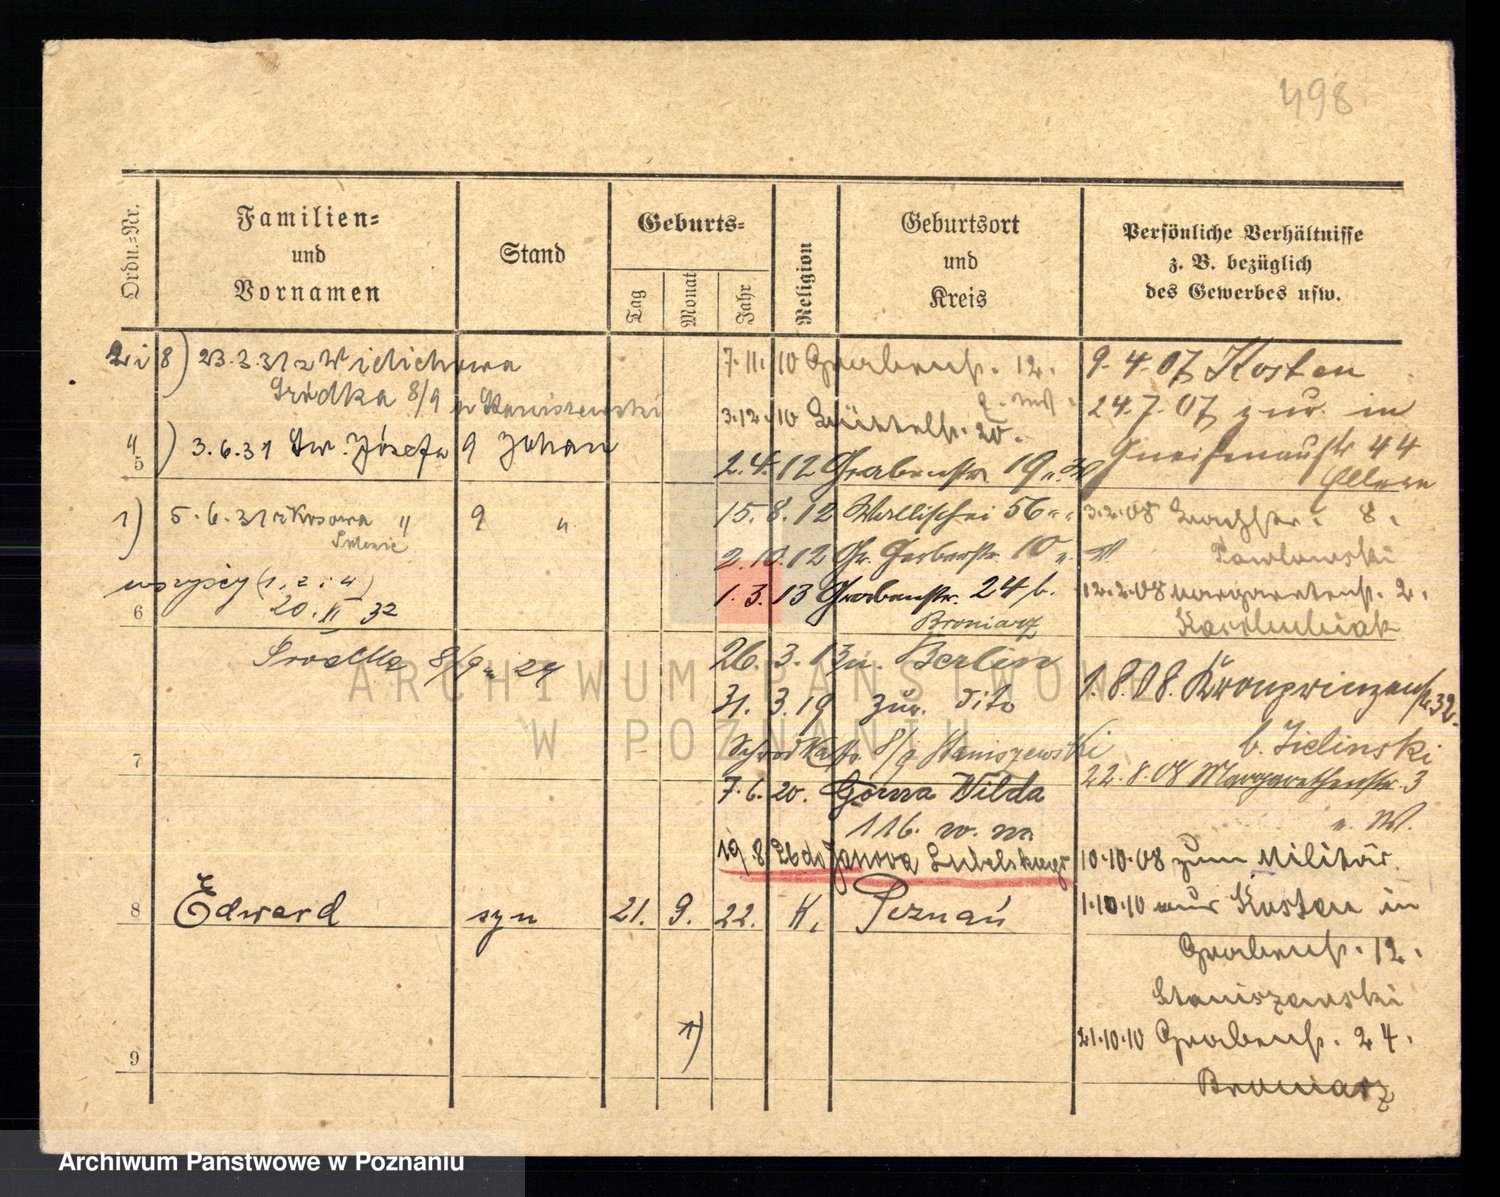 498
Ordn.=Nr.
Familien=
und
Vornamen
Stand
Geburts=
Tag
Monat
Jahr
Religion
Geburtsort
und
Kreis
Persönliche Verhältnisse
z. B. bezüglich
des Gewerbes usw.
2 i 8) 23.2.31 z Widichowa
Śródka 8/9 Staniszewski
4) 3.6.31 Św. Józefa 9 Johan
5
1) 5.6.31 z Kosowa " 9 "
wszyscy (1, 2 i 4)
20.II 32
6
Śródka 8/9 29
7
8 Edward syn 21. 9. 22. K. Poznań
1)
9
7.11.10 Grabenst. 12.
3.12.10 Büttelst. 20.
2.4.12 Grabenstr. 19
15.8.12 Wallischei 56
2.10.12 Gr. Gerberstr. 10
1.3.13 Grabenstr. 24 b.
Broniarz
26.3.13 n. Berlin
31.3.19 zur. dito
Schrodkastr. 8/9 Staniszewski
7.6.20. Górna Wilda
116. w. m
19.8.26 do Janowa Lubelskiego
9.4.07 Kosten
24.7.07 zur. in
Gneisenaustr 44
Eltern
3.2.08 8.
Pawlowski
12.2.08 Margaretenst. 2.
1.8.08. Kronprinzenst. 32.
b. Zielinski
22.8.08 Margarethenstr. 3
10.10.08 zum Militär.
1.10.10 aus Kosten in
Grabenst. 12.
Staniszewski
21.10.10 Grabenst. 24.
Broniarz
ARCHIWUM PAŃSTWOWE
W POZNANIU
Archiwum Państwowe w Poznaniu